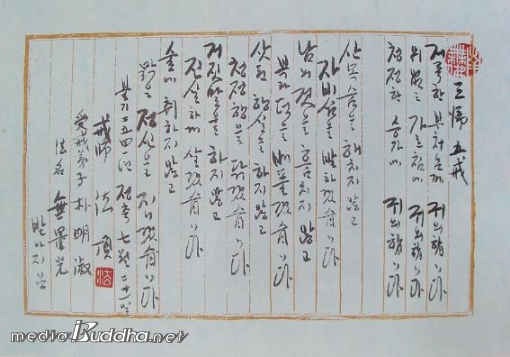 三歸 五戒
거룩한 부처님께 귀의합니다
위없는 가르침에 귀의합니다
청정한 승가에 귀의합니다
산 목숨을 해치지 않고
자비심을 발하겠읍니다
남의 것을 훔치지 않고
복과 덕을 베풀겠읍니다
삿된 행실을 하지 않고
청정행을 닦겠읍니다
거짓말을 하지 않고
진실하게 살겠읍니다
술에 취하지 않고
맑은 정신을 지니겠읍니다
불기 二五四一년 정축 七월 二十一일
戒師 法頂
受戒弟子 朴明淑
法名 無量光
받아지님
mediaBuddha.net